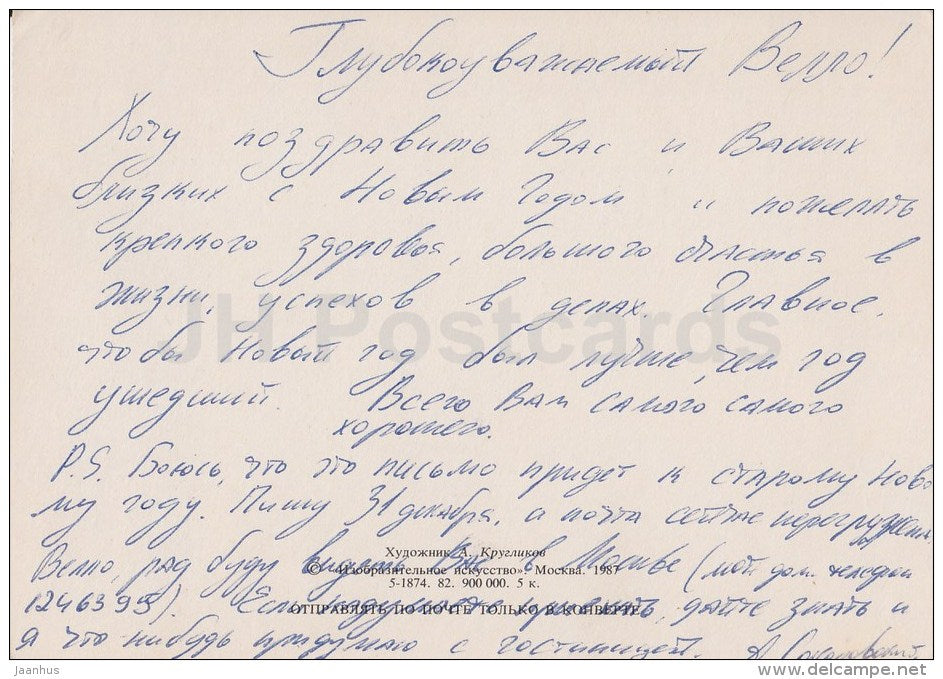 Глубокоуважаемый Велло!
Хочу поздравить Вас и Ваших
близких с Новым Годом и пожелать
крепкого здоровья, большого счастья в
жизни, успехов в делах. Главное,
чтобы Новый год был лучше, чем год
ушедший Всего Вам самого самого
хорошего.
P.S. Боюсь, что это письмо придет к старому Ново
му году. Пишу 31 декабря, а почта сейчас перегружена.
Художник А. Кругликов
Велло, рад буду видеть Вас в Москве (мой дом. телефон
© «Изобразительное искусство». Москва. 1987
5-1874. 82. 900 000. 5 к.
1246395). Если приехать, дайте знать и
ОТПРАВЛЯТЬ ПО ПОЧТЕ ТОЛЬКО В КОНВЕРТЕ
я что нибудь придумаю с гостиницей.
JH Postcards
jaanhus
www.delcampe.net